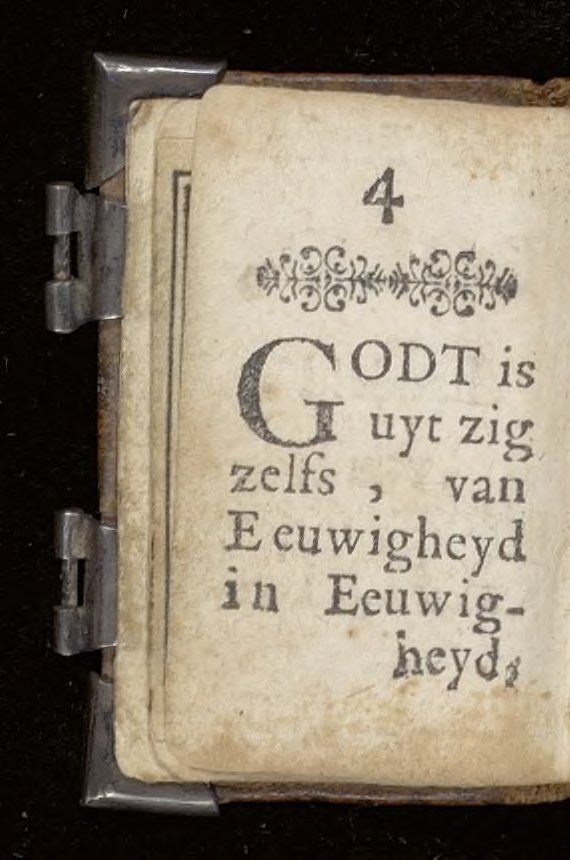 4
GODT is
uyt zig
zelfs, van
Eeuwigheyd
in Eeuwig-
heyd,